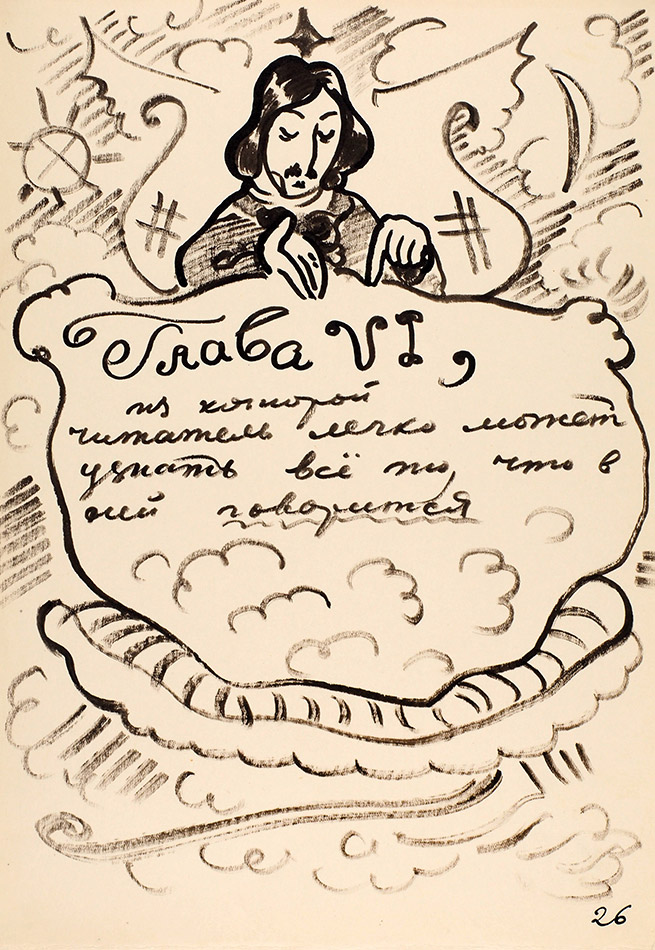 Глава VI,
из которой
читатель легко может
узнать всё то, что в
ней говорится
26